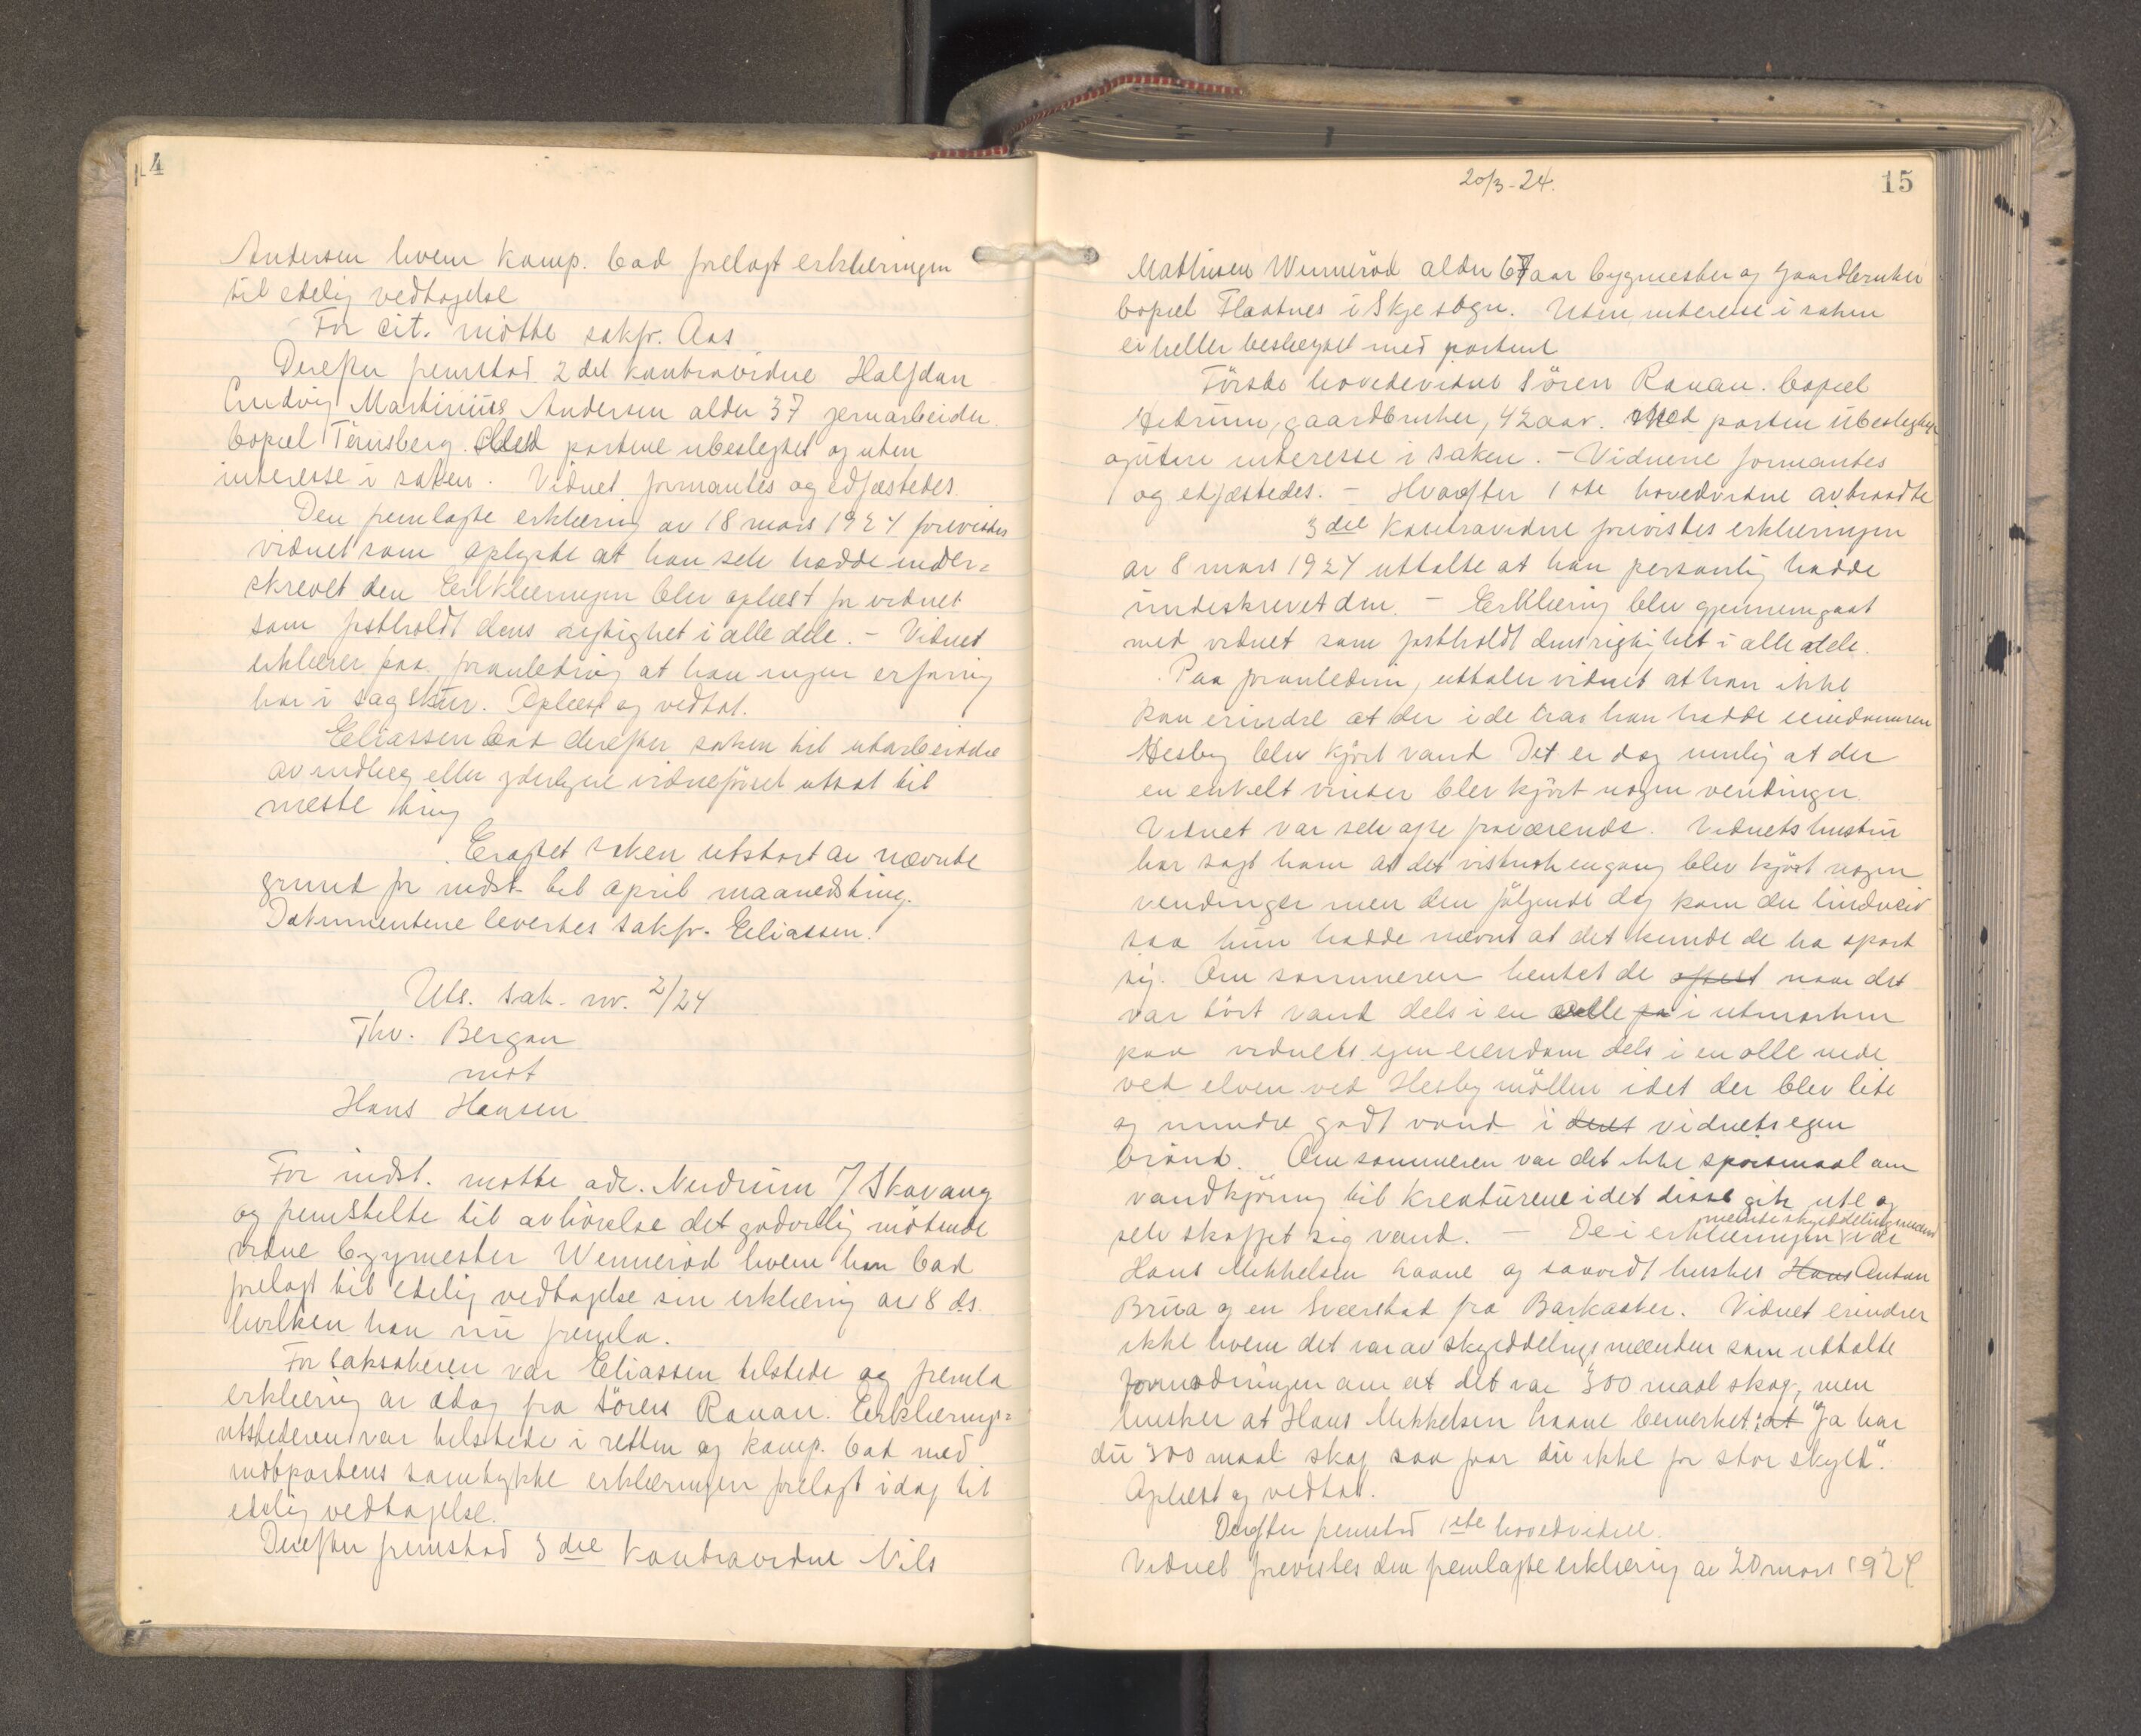 14
Andersen hvem komp. bad forelagt erklæringen
til edelig vedtagelse
For cit. møtte sakfr. Aas
Derefter fremstod 2det kontravidne Halfdan
Ludvig Martinius Andersen alder 37 jernarbeider
bopæl Tønsberg. Med partene ubeslegtet og uten
interesse i saken. Vidnet formantes og edfæstedes.
Den fremlagte erklæring av 18 mars 1924 forevistes
vidnet som oplyste at han selv hadde under=
skrevet den Erklæringen blev oplæst for vidnet
som fastholdt dens rigtighet i alle dele. – Vidnet
erklærer paa foranledning at han ingen erfaring
har i sagskur. Oplæst og vedtat.
Eliassen bad derefter saken til utarbeidelse
av indlæg eller yderligere vidneførsel utsat til
næste ting
Eragtet saken utsat av nævnte
grund for indst. til april maanedsting.
Dokumentene levertes sakfr. Eliassen.
Uts. sak. nr. 2/24
Thv. Bergan
mot
Hans Hansen
For indst. møtte adv. Nudrum v/ Skavang
og fremstelte til avhørelse det godvillig møtende
vidne bygmester Wennerød hvem han bad
forelagt til edelig vedtagelse sin erklæring av 8 ds.
hvilken han nu fremla.
For saksøkeren var Eliassen tilstede og fremla
erklæring av idag fra Søren Rauan. Erklærings=
utstederen var tilstede i retten og komp. bad med
motpartens samtykke erklæringen forelagt idag til
edelig vedtagelse.
Derefter fremstod 3die kontravidne Nils
20/3-24.
15
Mathisen Wennerød alder 67 aar bygmester og gaardbruker
bopæl Flaatnes i Skje sogn. Uten interesse i saken
ei heller beslegtet med partene
Første hovedvidne Søren Rauan. bopæl
Hedrum, gaardbruker, 42 aar. Med parten ubeslegtet
og uten interesse i saken. – Vidnene formantes
og edfæstedes. – Hvorefter 1ste hovedvidne avtraadte
3die kontravidne forevistes erklæringen
av 8 mars 1924 uttalte at han personlig hadde
underskrevet den. – Erklæring blev gjennemgaat
med vidnet som fastholdt dens rigtighet i alle dele.
Paa foranledning, uttaler vidnet at han ikke
kan erindre at der i de 6 aar han hadde eiendommen
Hesby blev kjørt vand Det er dog mulig at der
en enkelt vinter blev kjørt nogen vendinger.
Vidnet var selv ofte fraværende. Vidnets hustru
har sagt ham at det vistnok engang blev kjørt nogen
vendinger men den følgende dag kom der lindveir
saa hun hadde nævnt at det kunde de ha spart
sig. Om sommeren hentet de oftest naar det
var tørt vand dels i en olle pa i utmarken
paa vidnets egen eiendom dels i en olle nede
ved elven ved Hesby møllen idet der blev lite
og mindre godt vand i det vidnets egen
brønd. Om sommeren var det ikke spørsmaal om
vandkjøring til kreaturene idet disse gik ute og
selv skaffet sig vand. – De i erklæringen nævnte skylddelingsmænd var
Hans Mikkelsen Haane og saavidt huskes Hans Anton
Brua og en Sværstad fra Barkaaker. Vidnet erindrer
ikke hvem det var av skylddelingsmænden som uttalte
formodningen om at det var 300 maal skog, men
husker at Hans Mikkelsen Haane bemerket: at "Ja har
du 300 maal skog saa faar du ikke for stor skyld".
Oplæst og vedtat.
Derefter fremstod 1ste hovedvidne.
Vidnet forevistes den fremlagte erklæring av 20 mars 1924